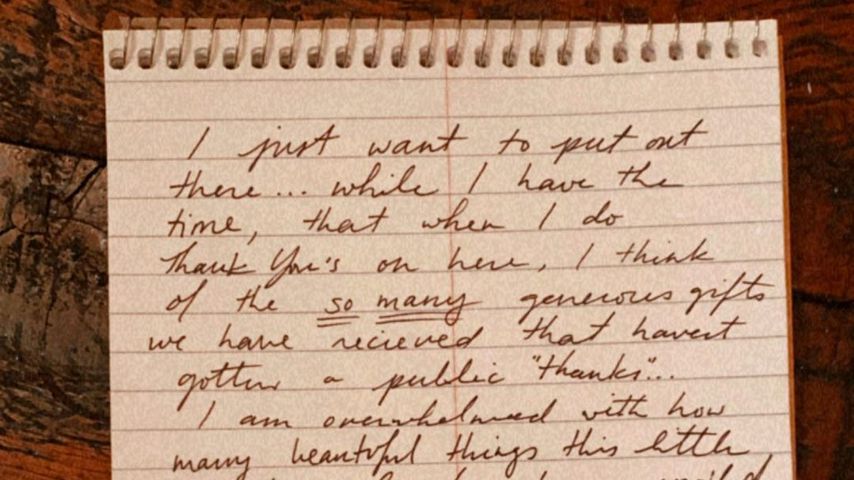 I just want to put out
there... while I have the
time, that when I do
Thank You's on here, I think
of the so many generous gifts
we have recieved that havent
gotten a public "thanks"...
I am overwhelmed with how
many beautiful things this little